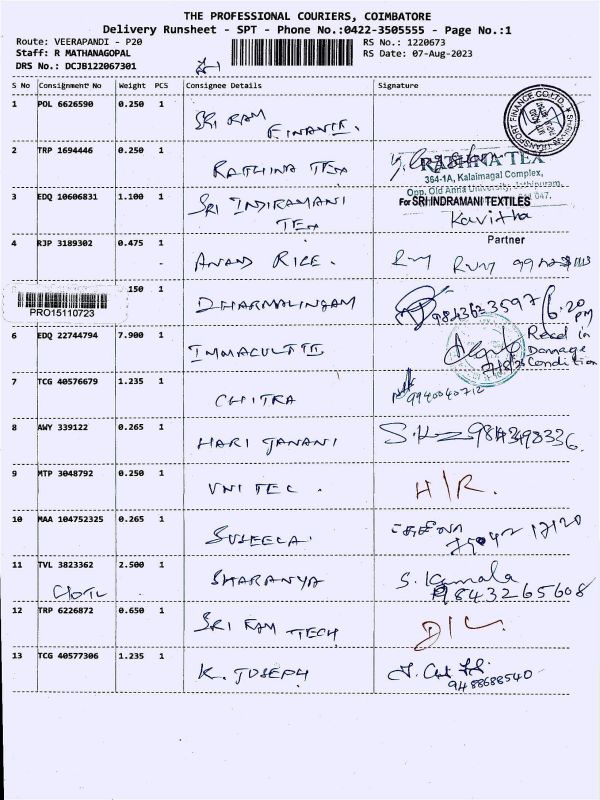 THE PROFESSIONAL COURIERS, COIMBATORE
Delivery Runsheet - SPT - Phone No.:0422-3505555 - Page No.:1
Route: VEERAPANDI - P20
Staff: R MATHANAGOPAL
DRS No.: DCJB122067301
RS No.: 1220673
RS Date: 07-Aug-2023
S No Consignment No Weight PCS Consignee Details Signature
1 POL 6626590 0.250 1 SRI RAM FINANCE.
TRANSPORT FINANCE CO.LTD.
2 TRP 1694446 0.250 1 RATHINA TEX
RATHNA TEX
364-1A, Kalaimagal Complex,
Opp. Old Anna University,
3 EDQ 10606831 1.100 1 SRI INDIRAMANI TEX
For SRI INDRAMANI TEXTILES
Kavitha
Partner
4 RJP 3189302 0.475 1 ANAND RICE.
PRO15110723
.150 1 DHARMALINGAM 9843623597 / 6.20 PM
6 EDQ 22744794 7.900 1
Recd in Damage Condition
7 TCG 40576679 1.235 1 CHITRA 9940040712
8 AWY 339122 0.265 1 HARI JANANI
9 MTP 3048792 0.250 1 UNITEC. H/R.
10 MAA 104752325 0.265 1 SUSEELA.
11 TVL 3823362 2.500 1 SHARANYA S. Kamala
9843265608
12 TRP 6226872 0.650 1 SRI RAM TECH D/L.
13 TCG 40577306 1.235 1 K. JOSEPH
9488688540